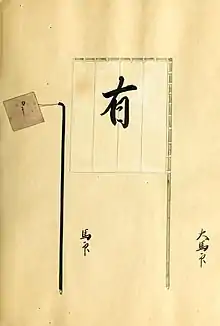 大馬印
有
馬印